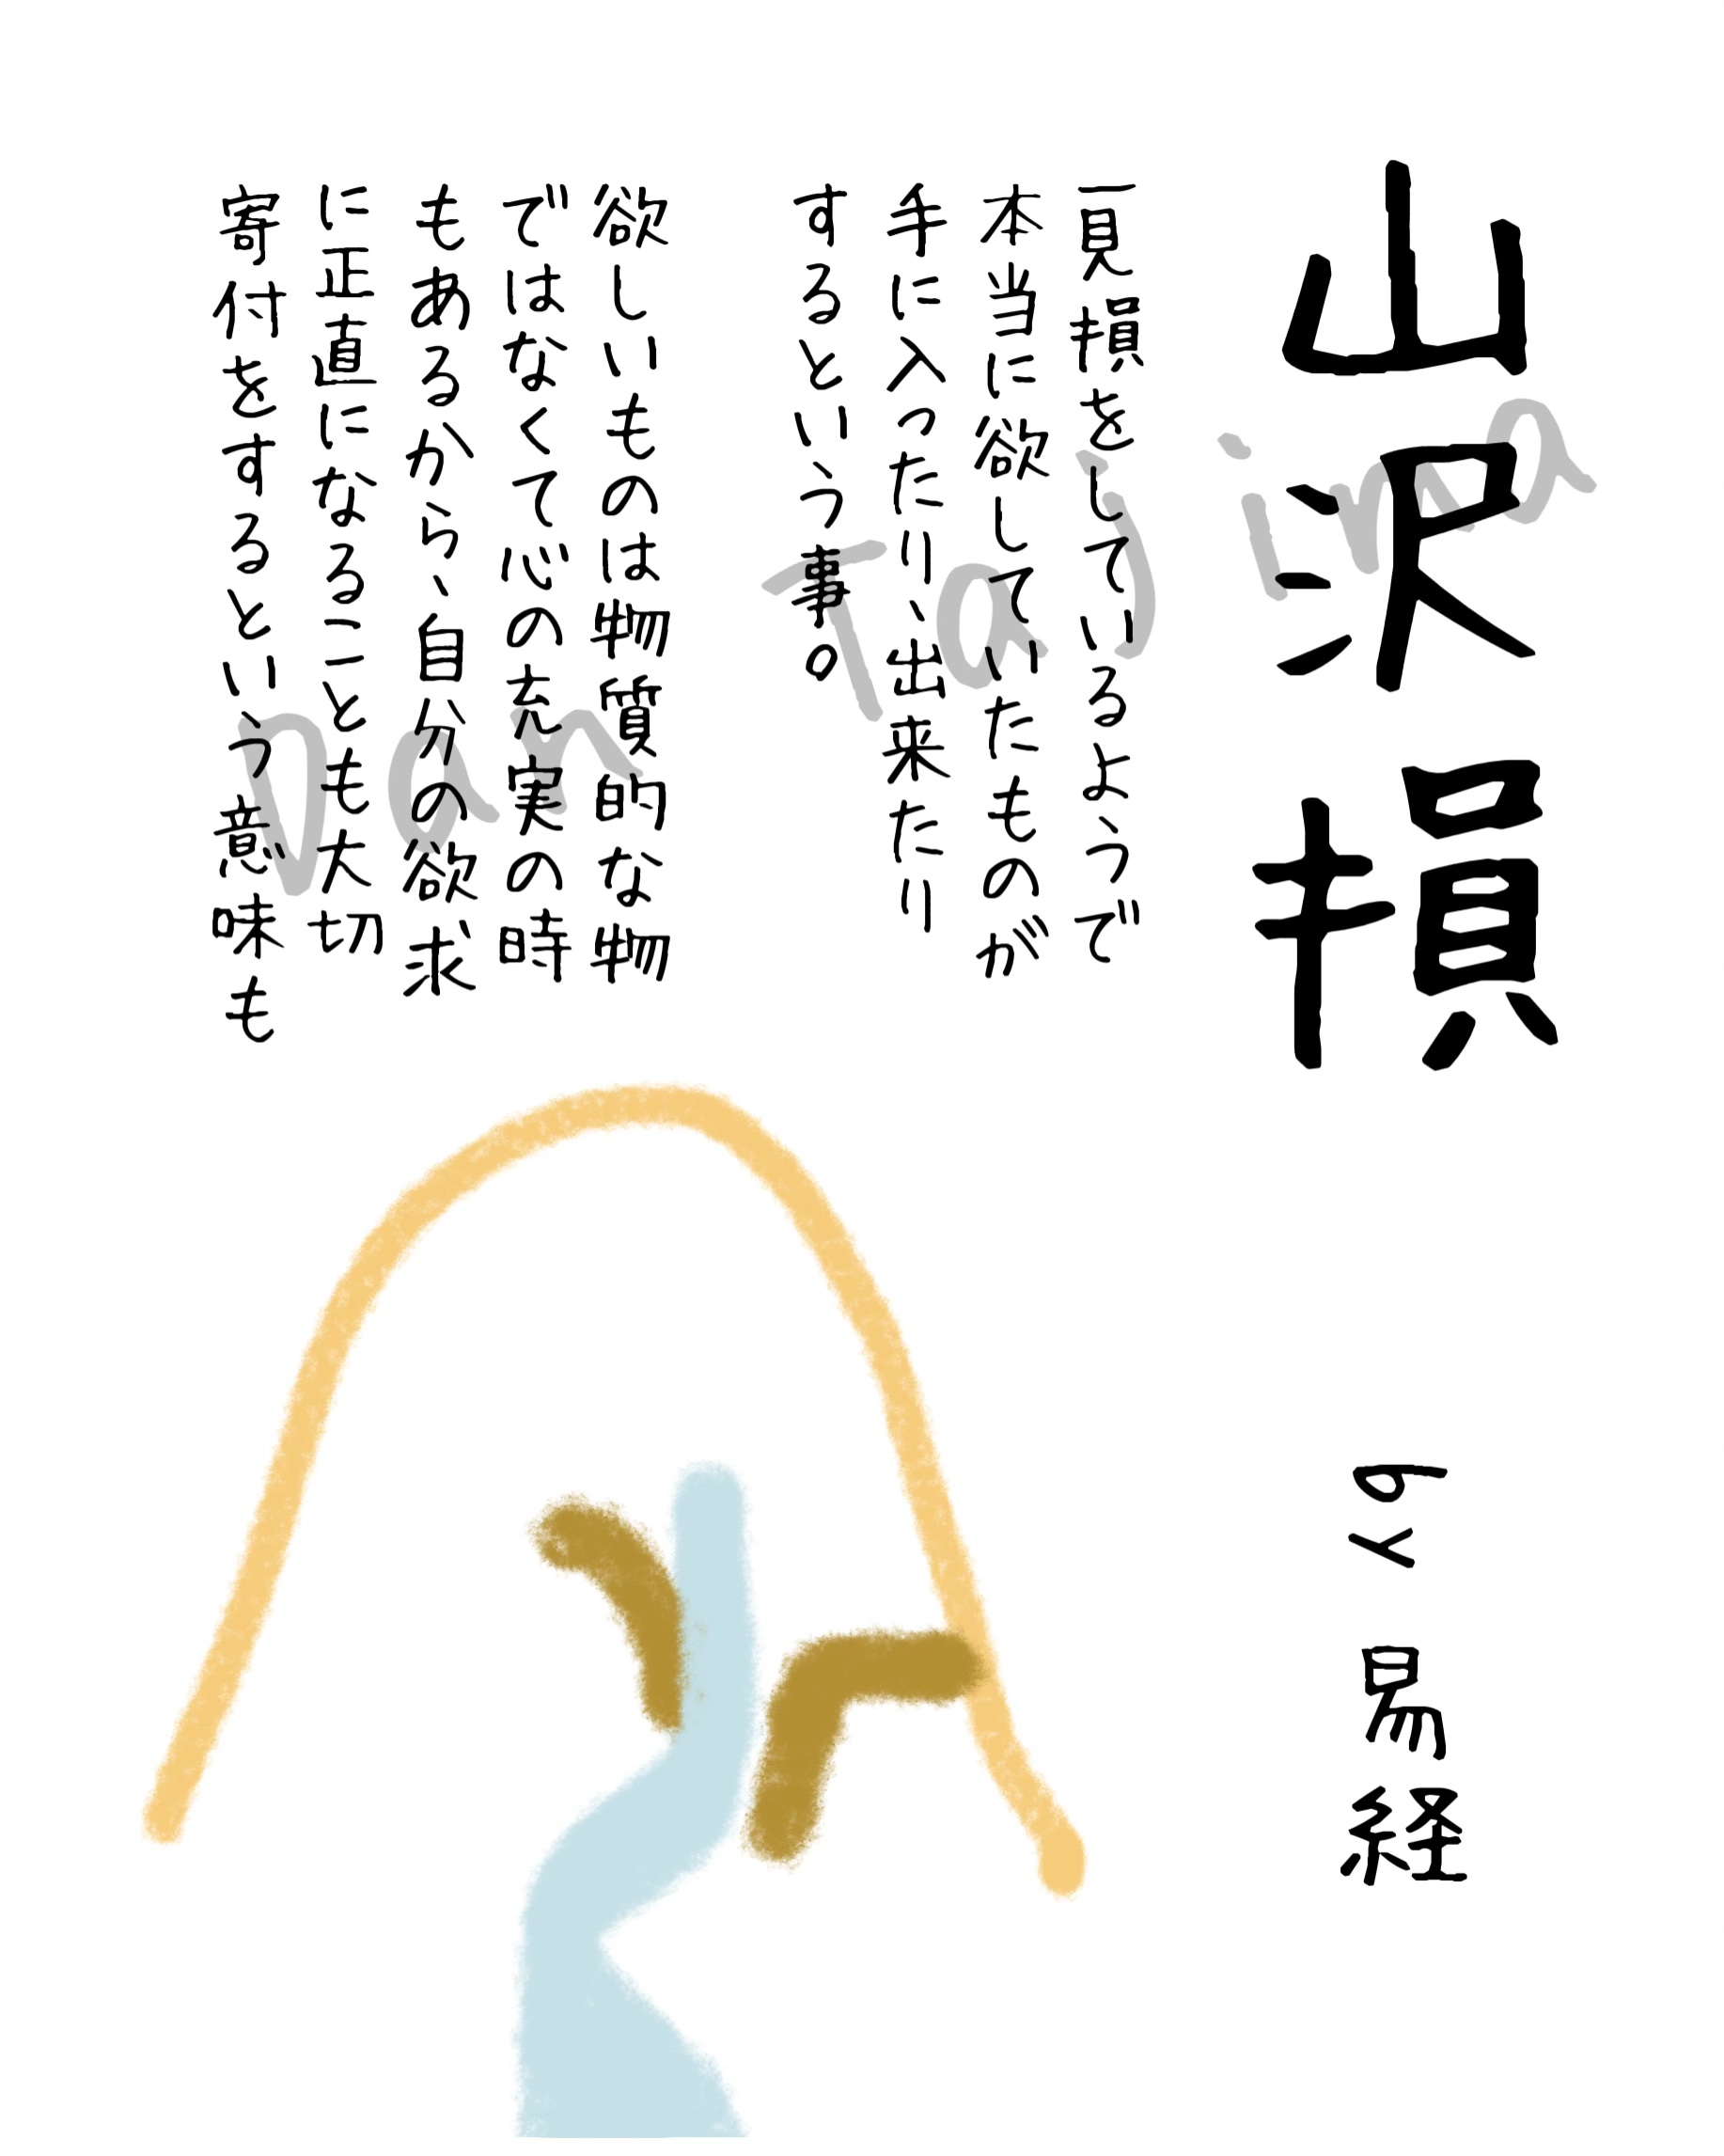 山沢損
by 易経
一見損をしているようで
本当に欲していたものが
手に入ったり、出来たり
するという事。
欲しいものは物質的な物
ではなくて心の充実の時
もあるから、自分の欲求
に正直になることも大切
寄付をするという意味も
Nan Tajima